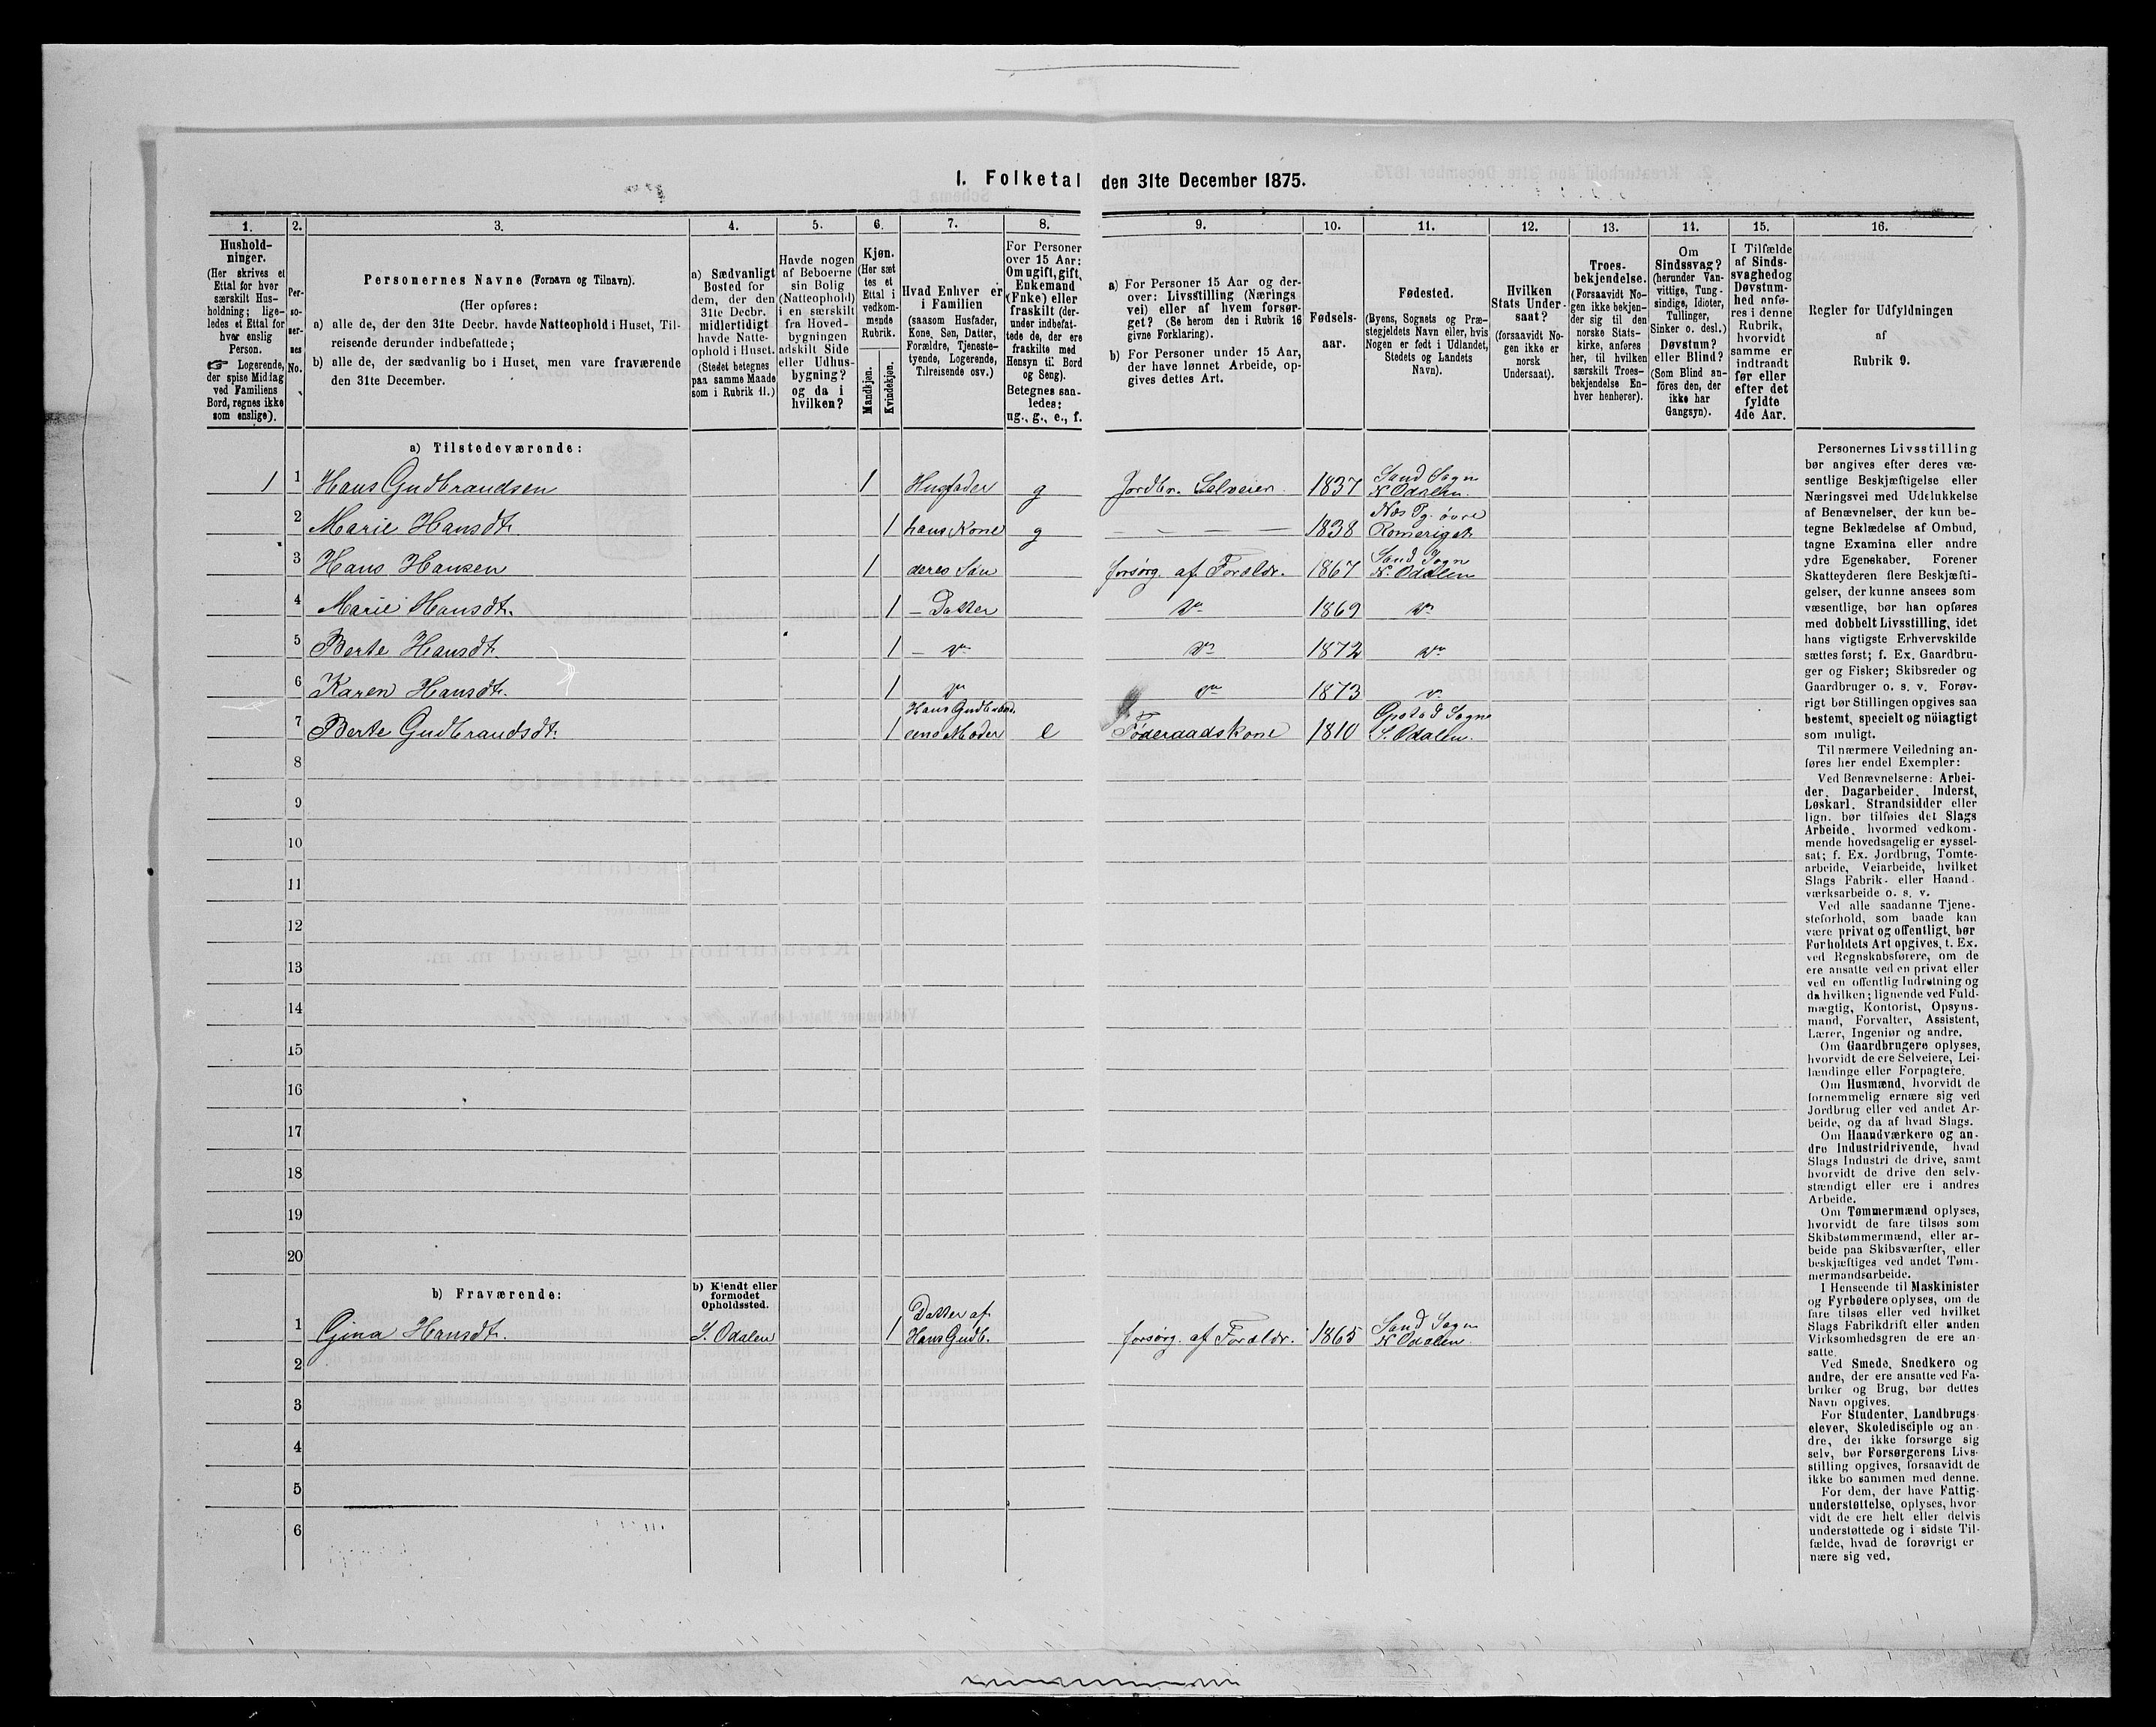 I. Folketal den 31te December 1875.
1. 2. 3. 4. 5. 6. 7. 8. 9. 10. 11. 12. 13. 14. 15. 16.
Hushold-
ninger.
(Her skrives et
Ettal for hver
særskilt Hus-
holdning; lige-
ledes et Ettal for
hver enslig
Person.
☞ Logerende,
der spise Middag
ved Familiens
Bord, regnes ikke
som enslige).
Per-
so-
ner-
nes
No.
Personernes Navne (Fornavn og Tilnavn).
(Her opføres:
a) alle de, der den 31te Decbr. havde Natteophold i Huset, Til-
reisende derunder indbefattede;
b) alle de, der sædvanlig bo i Huset, men vare fraværende
den 31te December.
a) Sædvanligt
Bosted for
dem, der den
31te Decbr.
midlertidigt
havde Natte-
ophold i Huset.
(Stedet betegnes
paa samme Maade
som i Rubrik 11.)
Havde nogen
af Beboerne
sin Bolig
(Natteophold)
i en særskilt
fra Hoved-
bygningen
adskilt Side
eller Udhus-
bygning?
og da i
hvilken?
Kjøn.
(Her sæt
tes et
Ettal i
vedkom-
mende
Rubrik.
Mandkjøn.
Kvindekjøn.
Hvad Enhver er
i Familien
(saasom Husfader,
Kone, Søn, Datter,
Forældre, Tjeneste-
tyende, Logerende,
Tilreisende osv.)
For Personer
over 15 Aar:
Om ugift, gift,
Enkemand
(Enke) eller
fraskilt (der-
under indbefat-
tede de, der ere
fraskilte med
Hensyn til Bord
og Seng).
Betegnes saa-
ledes:
ug., g., e., f.
a) For Personer 15 Aar og der-
over: Livsstilling (Nærings
vei) eller af hvem forsør-
get? (Se herom den i Rubrik 16
givne Forklaring).
b) For Personer under 15 Aar,
der have lønnet Arbeide, op-
gives dettes Art.
Fødsels-
aar.
Fødested.
(Byens, Sognets og Præ-
stegjeldets Navn eller, hvis
Nogen er født i Udlandet,
Stedets og Landets
Navn).
Hvilken
Stats Under-
saat?
(forsaavidt No-
gen ikke er
norsk
Undersaat).
Troes-
bekjendelse.
(Forsaavidt No-
gen ikke bekjen-
der sig til den
norske Stats-
kirke, anføres
her, til hvilken
særskilt Troes-
bekjendelse En-
hver henhører).
Om
Sindssvag?
(herunder Van-
vittige, Tung-
sindige, Idioter,
Tullinger,
Sinker o. desl.)
Døvstum?
eller Blind?
(Som Blind an-
føres den, der
ikke har
Gangsyn).
I Tilfælde
af Sinds-
svaghed og
Døvstum-
hed anfø-
res i denne
Rubrik,
hvorvidt
samme er
indtraadt
før eller
efter det
fyldte
4de Aar.
Regler for Udfyldningen
af
Rubrik 9.
a) Tilstedeværende:
1 1 Hans Gudbrandsen 1 Husfader g Jordbr. Selveier. 1837 Sand Sogn N. Odalen.
2 Marie Hansdt. 1 hans Kone g — — — 1838 Næs Pg. øvre Romeriget
3 Hans Hansen 1 deres Søn forsørg. af Foraldr. 1867 Sand Sogn N. Odalen
4 Marie Hansdt. 1 — Datter do 1869 do
5 Berte Hansdt. 1 — do do 1872 do
6 Karen Hansdt. 1 do do 1873 do
7 Berte Gudbrandsdt. 1 Hans Gudbrand. sens Moder e Føderaadskone 1810 Opstad Sogn S. Odalen.
8
9
10
11
12
13
14
15
16
17
18
19
20
b) Fraværende:
b) Kjendt eller
formodet
Opholdssted.
1 Gina Hansdt. S. Odalen 1 Datter af Hans Gudb. forsørg. af Foraldr. 1865 Sand Sogn N. Odalen.
2
3
4
5
6
Personernes Livsstilling
bør angives efter deres væ-
sentlige Beskjæftigelse eller
Næringsvei med Udelukkelse
af Benævnelser, der kun be-
tegne Beklædelse af Ombud,
tagne Examina eller andre
ydre Egenskaber. Forener
Skatteyderen flere Beskjæfti-
gelser, der kunne ansees som
væsentlige, bør han opføres
med dobbelt Livsstilling, idet
hans vigtigste Erhvervskilde
sættes først; f. Ex. Gaardbru-
ger og Fisker; Skibsreder og
Gaardbruger o. s. v. Forøv-
rigt bør Stillingen opgives saa
bestemt, specielt og nöiagtigt
som muligt.
Til nærmere Veiledning an-
føres her endel Exempler:
Ved Benævnelserne: Arbei-
der, Dagarbeider, Inderst,
Løskarl, Strandsidder eller
lign. bør tilføies det Slags
Arbeide, hvormed vedkom-
mende hovedsagelig er syssel-
sat; f. Ex. Jordbrug, Tomte-
arbeide, Veiarbeide, hvilket
Slags Fabrik- eller Haand-
værksarbeide o. s. v.
Ved alle saadanne Tjene-
steforhold, som baade kan
være privat og offentligt, bør
Forholdets Art opgives, t. Ex.
ved Regnskabsførere, om de
ere ansatte ved en privat eller
ved en offentlig Indretning og
da hvilken; lignende ved Fuld-
mægtig, Kontorist, Opsyns-
mand, Forvalter, Assistent,
Lærer, Ingeniør og andre.
Om Gaardbrugere oplyses,
hvorvidt de ere Selveiere, Lei-
lændinge eller Forpagtere.
Om Husmænd, hvorvidt de
fornemmelig ernære sig ved
Jordbrug eller ved andet Ar-
beide, og da af hvad Slags.
Om Haandværkere og an-
dre Industridrivende, hvad
Slags Industri de drive, samt
hvorvidt de drive den selv-
stændigt eller ere i andres
Arbeide.
Om Tømmermænd oplyses,
hvorvidt de fare tilsøs som
Skibstømmermænd, eller ar-
beide paa Skibsværfter, eller
beskjæftiges ved andet Tøm-
mermandsarbeide.
I Henseende til Maskinister
og Fyrbødere oplyses, om de
fare tilsøs eller ved hvilket
Slags Fabrikdrift eller anden
Virksomhedsgren de ere an-
satte.
Ved Smede, Snedkere og
andre, der ere ansatte ved Fa-
briker og Brug, bør dettes
Navn opgives.
For Studenter, Landbrugs-
elever, Skoledisciple og an-
dre, der ikke forsørge sig
selv, bør Forsørgerens Livs-
stilling opgives, forsaavidt de
ikke bo sammen med denne.
For dem, der have Fattig-
understøttelse, oplyses, hvor-
vidt de ere helt eller delvis
understøttede og i sidste Til-
fælde, hvad de forøvrigt er
nære sig ved.